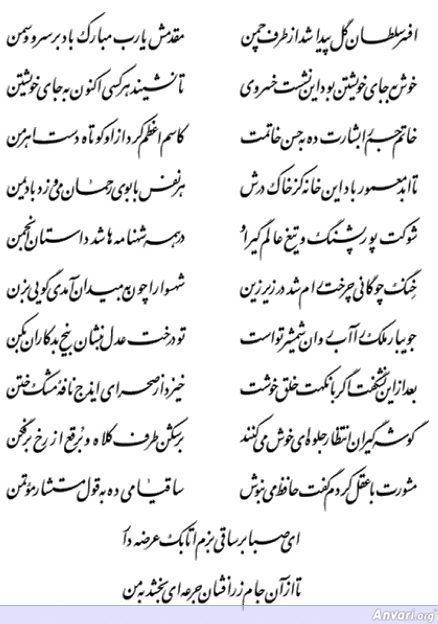 افسر سلطان گل پیدا شد از طرف چمن
مقدمش یارب مبارک باد بر سرو و سمن
خوش بجای خویشتن بود این نشست خسروی
تا نشیند هر کسی اکنون به جای خویشتن
خاتم جم را بشارت ده به حسن خاتمت
کاسم اعظم کرد از او کوتاه دست اهرمن
تا ابد معمور باد این خانه کز خاک درش
هر نفس با بوی رحمان می وزد باد یمن
شوکت پور پشنگ و تیغ عالم گیر او
در همه شهنامه ها شد داستان انجمن
خنگ چوگانی چرخت رام شد در زیر زین
شهسوارا چون به میدان آمدی گویی بزن
جویبار ملک را آب روان شمشیر تو است
تو درخت عدل بنشان بیخ بدکاران بکن
بعد از این نشگفت اگر با نکهت خلق خوشت
خیزد از صحرای ایذج نافه مشک ختن
گوشه گیران انتظار جلوه ای خوش می کنند
برشکن طرف کلاه و برقع از رخ برفکن
مشورت با عقل کردم گفت حافظ می بنوش
ساقیا می ده به قول مستشار مؤتمن
ای صبا بر ساقی بزم اتابک عرضه دار
تا از آن جام زرافشان جرعه ای بخشد به من
Anvari.org